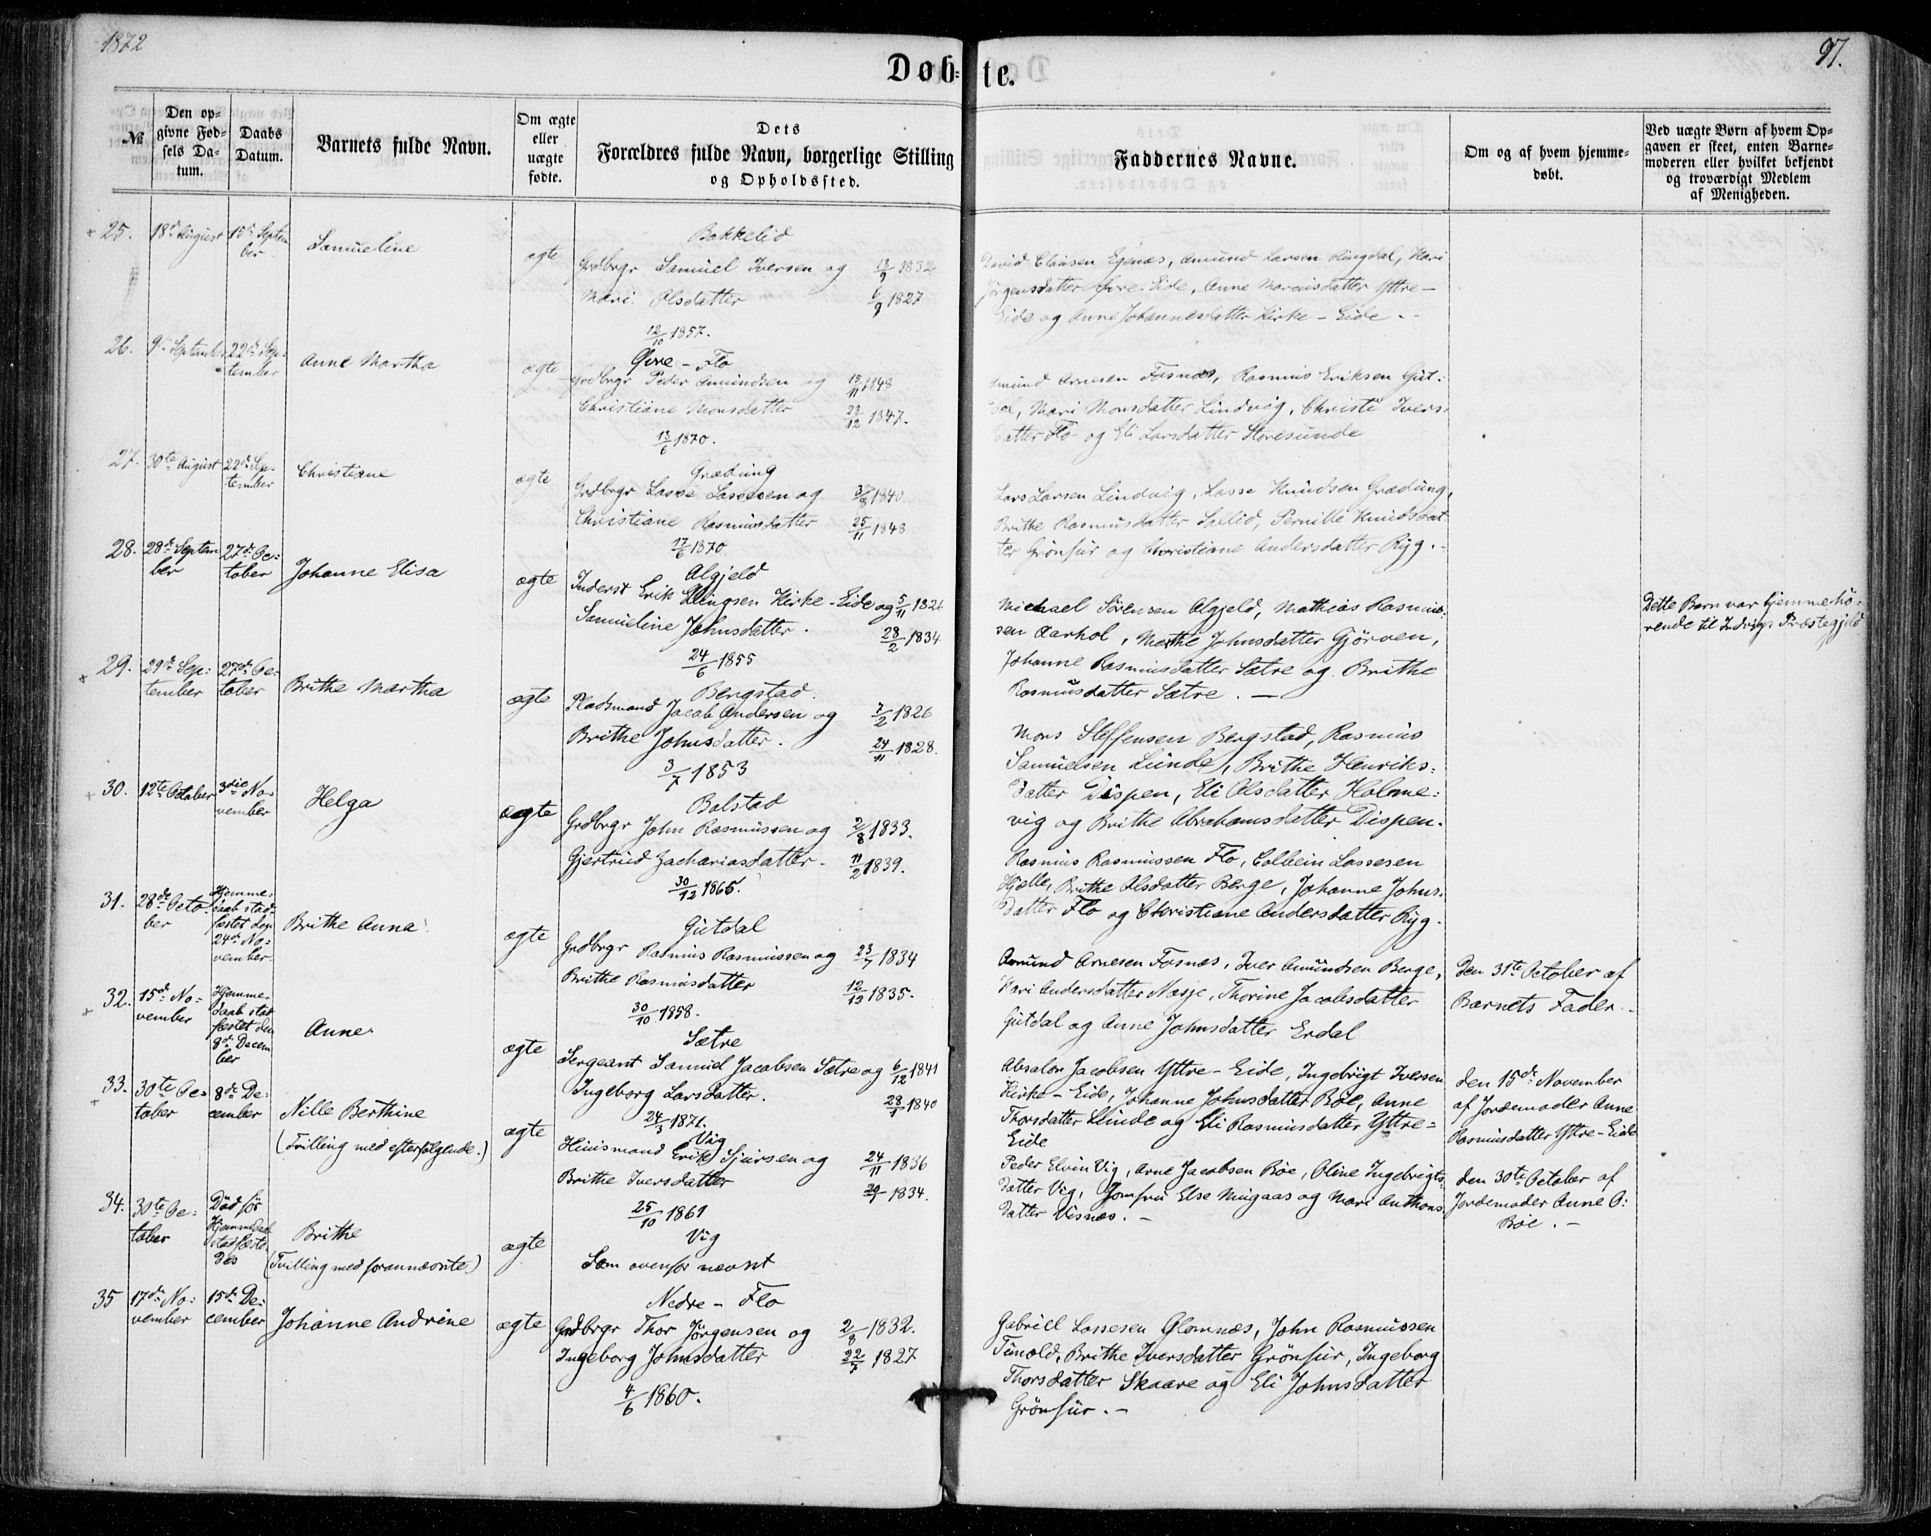 1872
97.
Døb-te.
№
Den op-
givne Fød-
sels Da-
tum.
Daabs
Datum.
Barnets fulde Navn.
Om ægte
eller
uægte
fødte.
Dets
Forældres fulde Navn, borgerlige Stilling
og Opholdssted.
Faddernes Navne.
Om og af hvem hjemme-
døbt.
Ved uægte Børn af hvem Op-
gaven er skeet, enten Barne-
moderen eller hvilket bekjendt
og troværdigt Medlem
af Menigheden.
25.
18de August
15de Septem
ber
Samueline
ægte
Bakkelid
Grdbrgr Samuel Iversen og 13/9 1832
Mari Olsdatter 6/9 1827
12/10 1857.
David Clausen Egenæs, Amund Larsen Ringdal, Mari
Jörgensdatter Övre-Eide, Anne Mariusdatter Yttre-
Eide og Anne Johannesdatter Kirke-Eide.-
26.
9de September
22de Sep-
tember
Anne Martha
ægte
Övre-Flo
Grdbrgr Peder Amundsen og 19/11 1848
Christiane Monsdatter 29/12 1847.
13/6 1870.
Amund Arnesen Fosnæs, Rasmus Eriksen Gut-
dal, Mari Monsdatter Lindvig, Christi Ivers-
datter Flo og Eli Larsdatter Storesunde
27.
30te August
22de Sep-
tember
Christiane
ægte
Grædung
Grdbrgr Lasse Lassesen og 3/8 1840
Christiane Rasmusdatter 25/11 1848
17/6 1870.
Lars Larsen Lindvig, Lasse Knudsen Grædung,
Brithe Rasmusdatter Sælid, Pernille Knudsdat-
ter Grönfur og Christiane Andersdatter Ryg.-
28.
28de Septem
ber
27de Oc-
tober
Johanne Elisa
ægte
Algjeld
Inderst Erik Ellingsen Kirke-Eide og 5/11 1821
Samueline Johnsdatter. 28/2 1834
24/6 1855
Michael Sörensen Algjeld, Mathias Rasmus-
sen Aarhol, Marthe Johnsdatter Gjörven,
Johanne Rasmusdatter Sætre og Brithe
Rasmusdatter Sætre.-
Dette Barn var hjemmehö-
rende til Indvigs Præstegjeld
29.
29de Sep-
tember
27de Oc-
tober
Brithe Martha
ægte
Bergstad.
Pladsmand Jacob Andersen og 7/2 1826
Brithe Johnsdatter. 24/11 1828.
3/7 1853
Mons Steffensen Bergstad, Rasmus
Samuelsen Lunde, Brithe Henriks-
datter Dispen, Eli Olsdatter Holme-
vig og Brithe Abrahamsdatter Dispen.
30.
12te October
3die No-
vember
Helga
ægte
Bolstad
Grdbrgr John Rasmussen og 2/8 1833.
Gjertrud Zachariasdatter. 11/2 1839.
30/12 1865.
Rasmus Rasmussen Flo, Colbein Lassesen
Hjelle, Brithe Olsdatter Berge, Johanne Johns-
datter Flo og Christiane Andersdatter Ryg.
31.
28de Octo-
ber
Hjemme-
daab stad-
fæstet den
24de No-
vember
Brithe Anna
ægte
Gutdal
Grdbrgr Rasmus Rasmussen og 23/7 1834
Brithe Rasmusdatter 12/12 1835.
30/10 1858.
Amund Arnesen Fosnæs, Iver Amundsen Berge,
Kari Andersdatter Nasje, Thorine Jacobsdatter
Gutdal og Anne Johnsdatter Erdal
Den 31te October af
Barnets Fader.-
32.
15de No-
vember
Hjemme-
daab stad-
fæstet den
8de Decem-
ber
Anne
ægte
Sætre
Sergeant Samuel Jacobsen Sætre og 6/12 1841
Ingeborg Larsdatter. 28/1 1840
24/3 1871.
Absalon Jacobsen Yttre-Eide, Ingebrigt Iversen
Kirke-Eide, Johanne Johnsdatter Böe, Anne
Thorsdatter Lunde og Eli Rasmusdatter Yttre-
Eide
Den 15de November
af Jordemoder Anne
Rasmusdatter Yttre-Eide
33.
30te Oc-
tober
8de De-
cember
Nille Berthine
(Tvilling med efterfølgende.)
ægte
Vig
Huusmand Erik Sjursen og 24/11 1836
Brithe Iversdatter 20/1 1834.
25/10 1861
Peder Elvin Vig, Arne Jacobsen Böe, Oline Ingebrigts-
datter Vig, Jomfru Else Mugaas og Mari Anthons-
datter Visnæs.-
Den 30te October af
Jordemoder Anne O.
Böe.-
34.
30te Oc-
tober
Död för
Hjemmedaab
stadfæste-
des
Brithe
(Tvilling med forannævnte)
ægte
Vig
Som ovenfor nævnt
35
17de No-
vember
15de De-
cember
Johanne Andrine
ægte
Nedre-Flo
Grdbrgr Thor Jörgensen og 2/8 1832.
Ingeborg Johnsdatter 22/7 1827
4/6 1860.
Gabriel Lassesen Glomnæs, John Rasmussen
Tunold, Brithe Iversdatter Grönfur, Ingeborg
Thorsdatter Skaare og Eli Johnsdatter
Grönfur.-